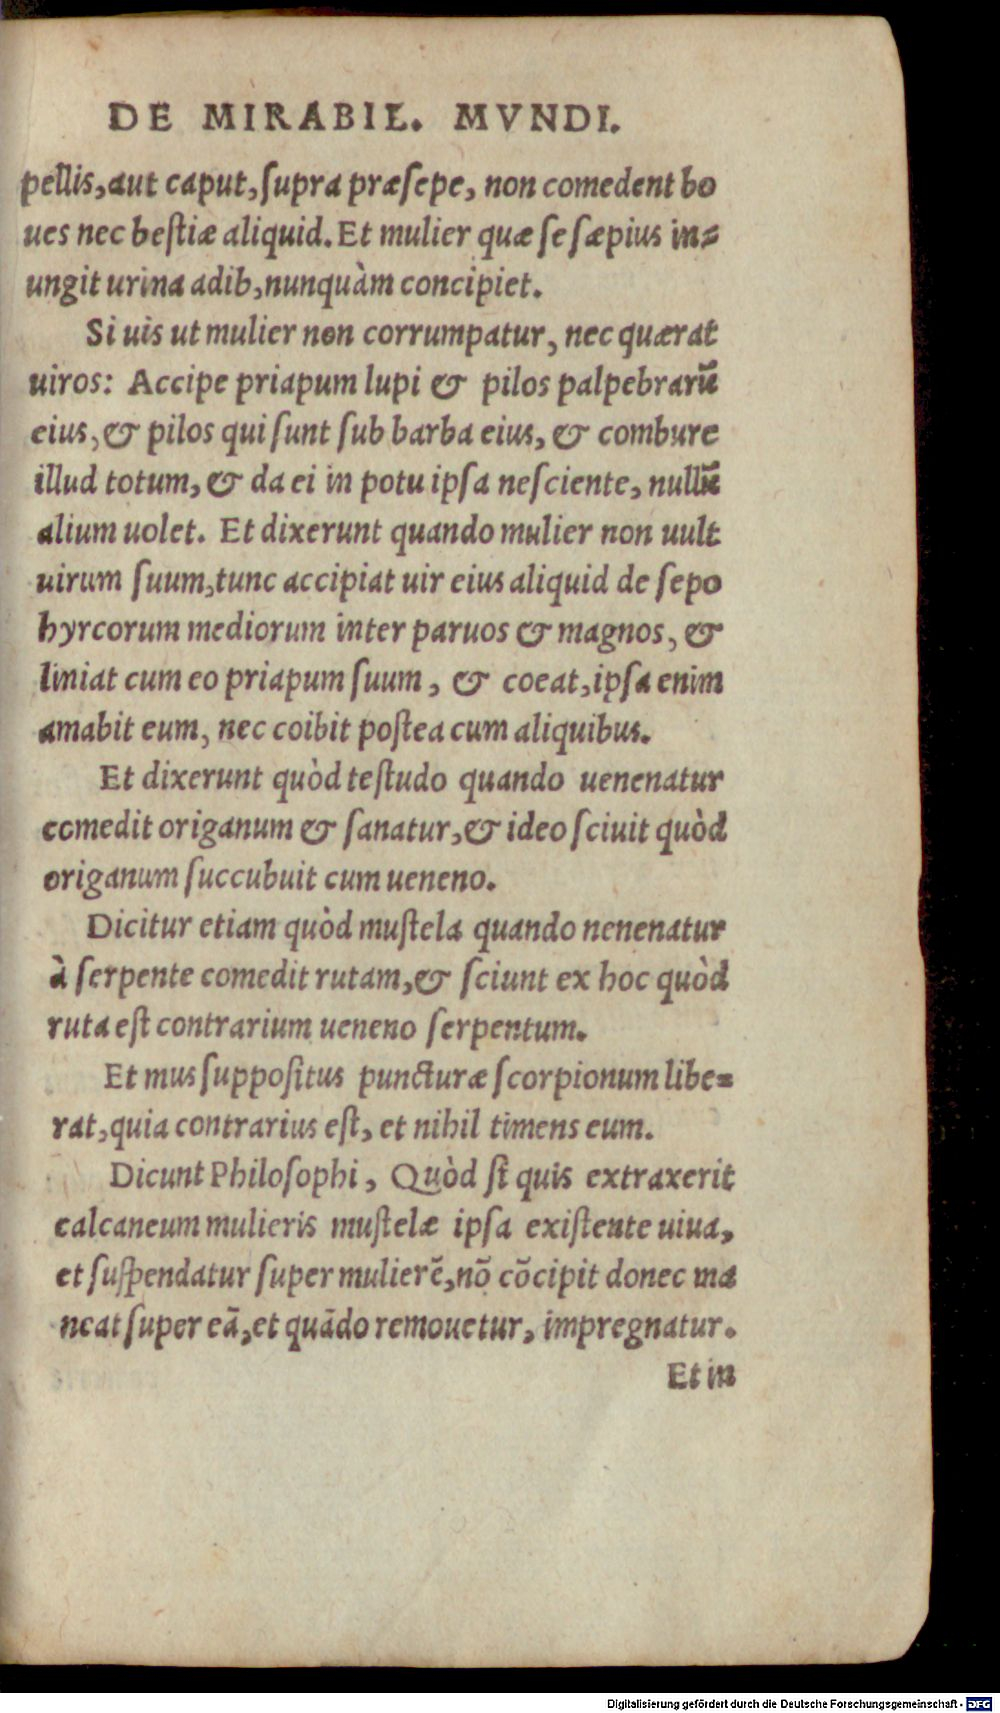 DE MIRABIL. MVNDI.
pellis, aut caput, ſupra præſepe, non comedent bo
ues nec beſtiæ aliquid. Et mulier quæ ſe ſæpius in⸗
ungit urina adib, nunquàm concipiet.
Si uis ut mulier non corrumpatur, nec quærat
uiros: Accipe priapum lupi & pilos palpebrarũ
eius, & pilos qui ſunt ſub barba eius, & combure
illud totum, & da ei in potu ipſa neſciente, nullũ
alium uolet. Et dixerunt quando mulier non uult
uirum ſuum, tunc accipiat uir eius aliquid de ſepo
hyrcorum mediorum inter paruos & magnos, &
liniat cum eo priapum ſuum, & coeat, ipſa enim
amabit eum, nec coibit poſtea cum aliquibus.
Et dixerunt quòd teſtudo quando uenenatur
comedit origanum & ſanatur, & ideo ſciuit quòd
origanum ſuccubuit cum ueneno.
Dicitur etiam quòd muſtela quando nenenatur
à ſerpente comedit rutam, & ſciunt ex hoc quòd
ruta eſt contrarium ueneno ſerpentum.
Et mus ſuppoſitus puncturæ ſcorpionum libe⸗
rat, quia contrarius eſt, et nihil timens eum.
Dicunt Philoſophi, Quòd ſi quis extraxerit
calcaneum mulieris muſtelæ ipſa exiſtente uiua,
et ſuſpendatur ſuper mulierẽ, nõ cõcipit donec ma
neat ſuper eã, et quãdo remouetur, impregnatur.
Et in
Digitalisierung gefördert durch die Deutsche Forschungsgemeinschaft - DFG